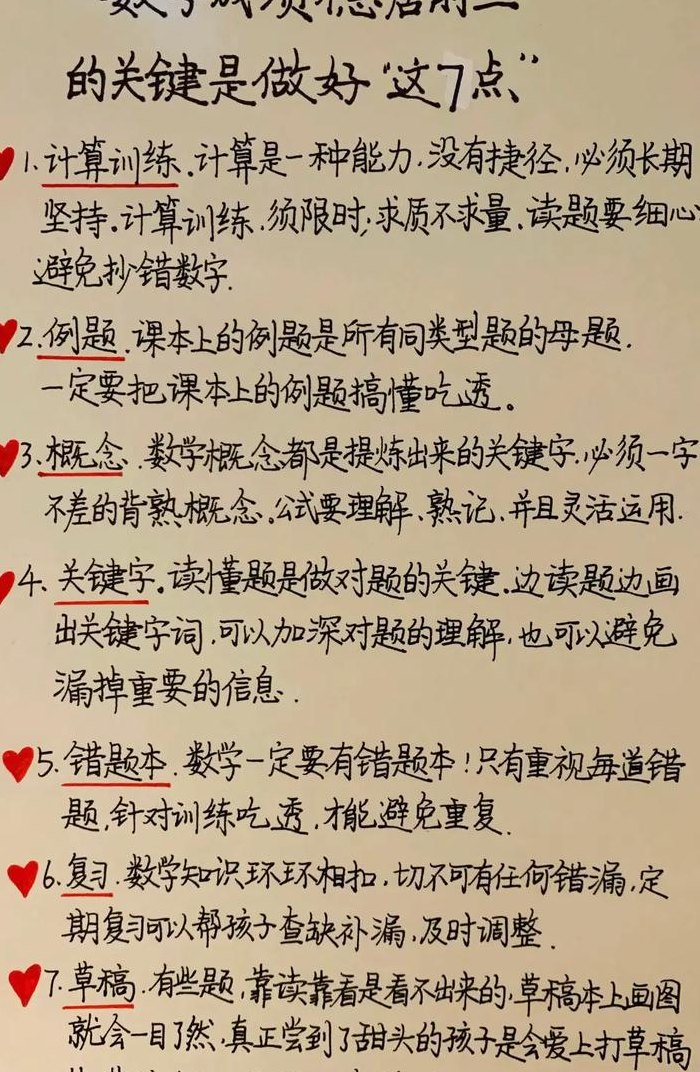 数学成绩稳居前三
的关键是做好“这7点”
1.计算训练.计算是一种能力.没有捷径.必须长期
坚持.计算训练.须限时;求质不求量.读题要细心
避免抄错数字.
2.例题.课本上的例题是所有同类型题的母题.
一定要把课本上的例题搞懂吃透。
3.概念.数学概念都是提炼出来的关键字.必须一字
不差的背熟概念.公式要理解、熟记、并且灵活运用.
4、关键字.读懂题是做对题的关键.边读题边画
出关键字词,可以加深对题的理解,也可以避免
漏掉重要的信息.
5.错题本.数学一定要有错题本！只有重视每道错
题,针对训练吃透,才能避免重复.
6.复习.数学知识环环相扣,切不可有任何错漏,定
期复习可以帮孩子查缺补漏,及时调整.
7.草稿.有些题,靠读靠看是看不出来的,草稿本上画图
就会一目了然,真正尝到了甜头的孩子是会爱上打草稿